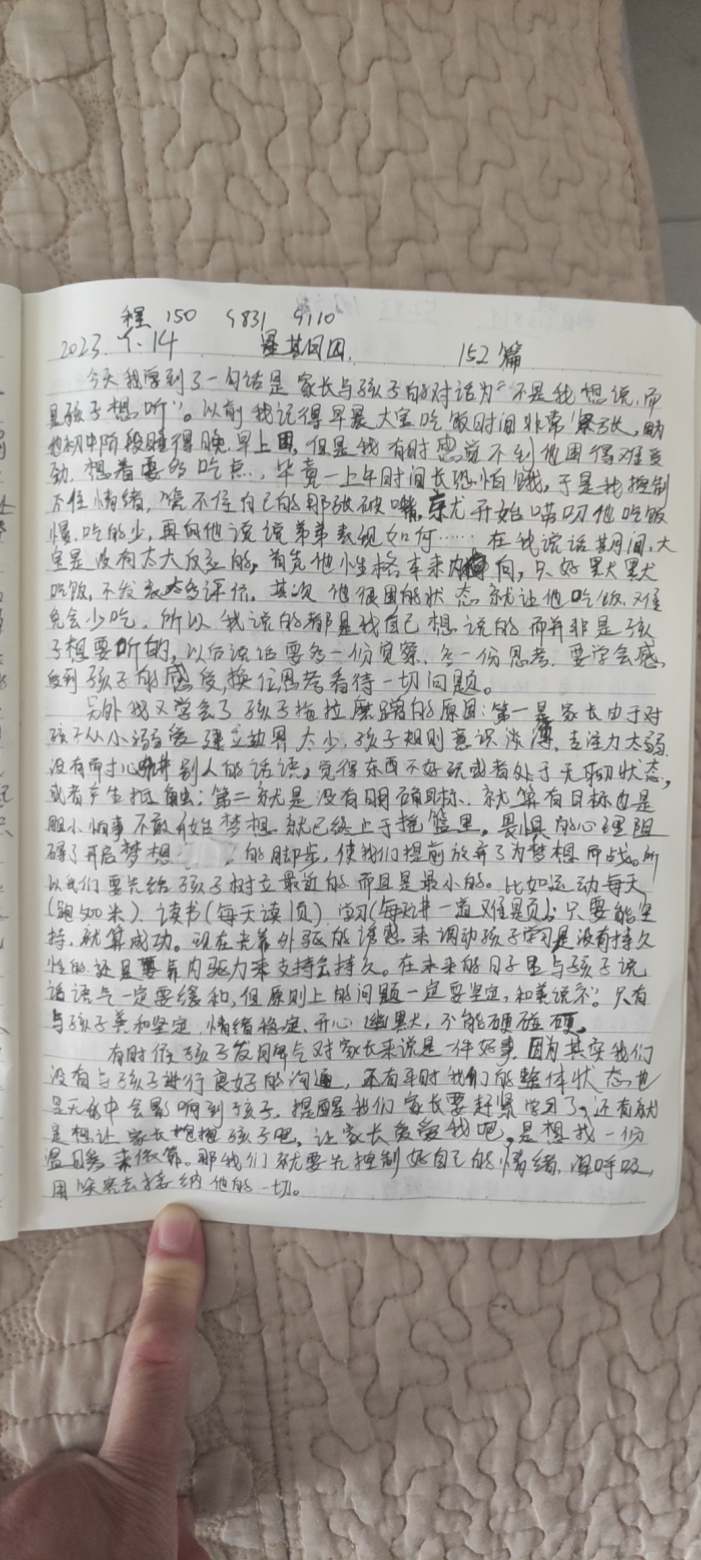 程 150 5831 9110
2023. 1. 14 星期因 152篇
今天我学到了一句话是家长与孩子的对话为"不是我想说,而
是孩子想听"。以前我记得早晨大宝吃饭时间非常紧张,
他初中阶段睡得晚,早上困,但是我有时感觉不到他困得难受
劲,想着要多吃点,毕竟一上午时间长恐怕饿,于是我控制
不住情绪,管不住自己的那张破嘴,就开始唠叨他吃饭
慢,吃的少,再向他说说弟弟表现如何……在我说话期间,大
宝是没有太大反应的,首先他性格本来内向,只好默默
吃饭,不发表太多评价。其次他很困的状态就让他吃饭,难
免会少吃,所以我说的都是我自己想说的而并非是孩
子想要听的,以后说话要多一份觉察,多一份思考,要学会感
受到孩子的感受,换位思考看待一切问题。
另外我又学会了孩子拖拉磨蹭的原因:第一是家长由于对
孩子从小溺爱建立边界太少,孩子规则意识淡薄,专注力太弱,
没有耐心听别人的话语,觉得东西不好玩或者处于无聊状态,
或者产生抵触;第二就是没有明确目标,就算有目标也是
胆小怕事不敢开始梦想就已终止于摇篮里,畏惧的心理阻
碍了开启梦想的脚步,使我们提前放弃了为梦想而战。所
以我们要先给孩子树立最近的而且是最小的。比如运动每天
(跑500米)、读书(每天读1页)学习(每天讲一道难题);只要能坚
持,就算成功。现在光靠外驱的诱惑来调动孩子学习是没有持久
性的,还是要靠内驱力来支持会持久。在未来的日子里与孩子说
话语气一定要缓和,但原则上的问题一定要坚定,和善说不。只有
与孩子善和坚定,情绪稳定、开心幽默,不能硬碰硬。
有时候孩子发脾气对家长来说是一件好事,因为其实我们
没有与孩子进行良好的沟通,还有平时我们的整体状态也
是无意中会影响到孩子,提醒我们家长要赶紧学习了,还有就
是想让家长抱抱孩子吧,让家长爱爱我吧,是想找一份
温暖来依靠。那我们就要先控制好自己的情绪,深呼吸,
用 去接纳他的一切。